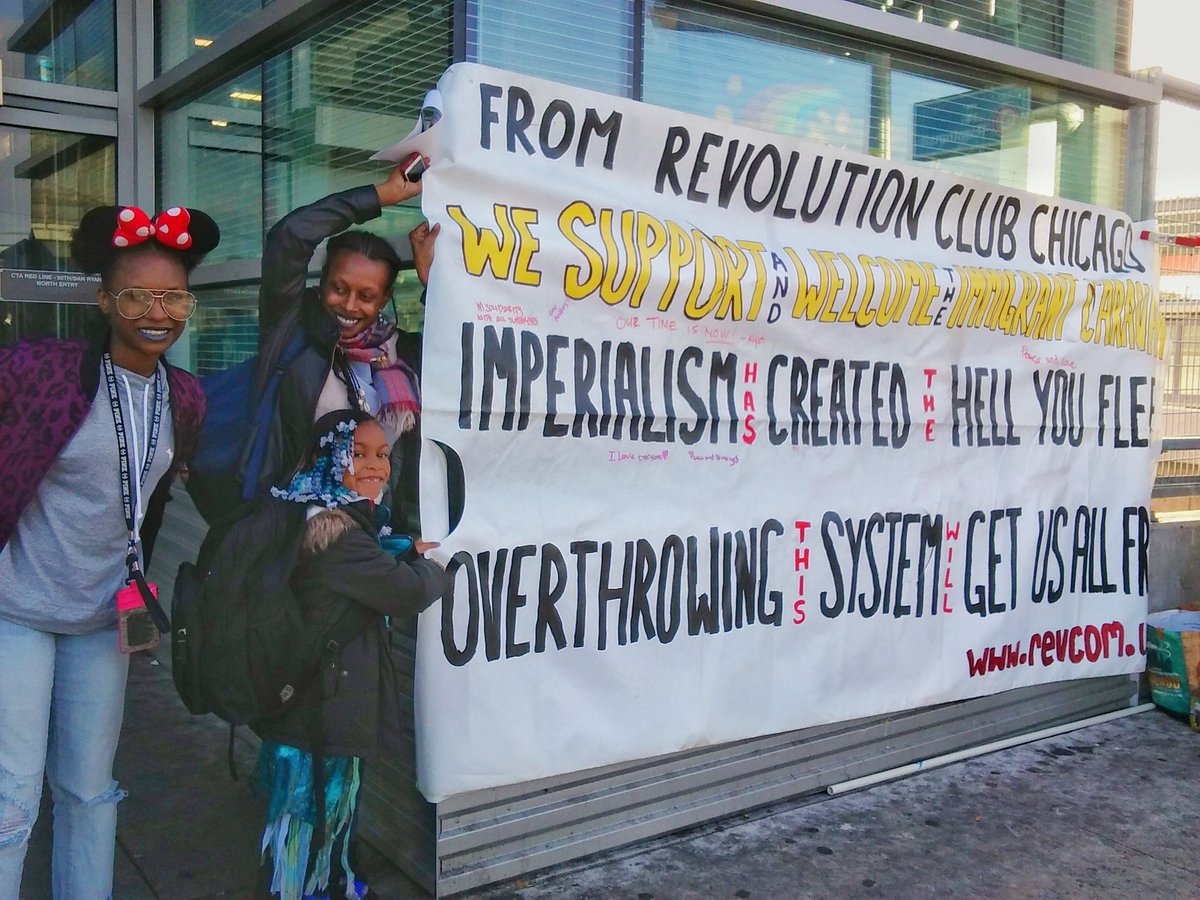 FROM REVOLUTION CLUB CHICAGO
WE SUPPORT AND WELCOME THE IMMIGRANT CARAVAN
IN SOLIDARITY
WITH ALL SUFFERERS
OUR TIME IS NOW!
Peace and love
IMPERIALISM HAS CREATED THE HELL YOU FLEE
I Love everyone
OVERTHROWING THIS SYSTEM WILL GET US ALL FR
www.revcom.u
CTA RED LINE - 95TH/DAN RYAN
NORTH ENTRY
PINK PINK PINK